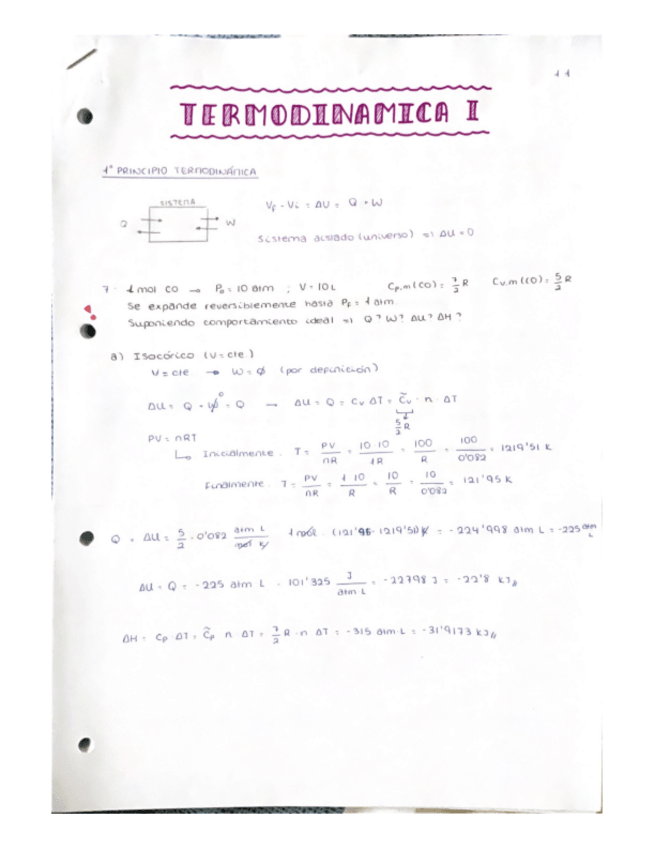 11
TERMODINAMICA I
1º PRINCIPIO TERMODINÁMICA
SISTEMA
Q W
Vf - Vi = ΔU = Q + W
Sistema aislado (universo) => ΔU = 0
7. 1 mol CO → P₀ = 10 atm ; V = 10 L Cp,m (CO) = 7/2 R Cv,m (CO) = 5/2 R
Se expande reversiblemente hasta Pf = 1 atm
Suponiendo comportamiento ideal => Q? W? ΔU? ΔH?
a) Isocórico (V = cte)
V = cte → W = ∅ (por definición)
ΔU = Q + W⁰ = Q → ΔU = Q = Cv ΔT = C̃v · n · ΔT
5/2 R
PV = nRT
Inicialmente. T = PV/nR = 10·10/1R = 100/R = 100/0'082 = 1219'51 K
Finalmente. T = PV/nR = 1·10/R = 10/R = 10/0'082 = 121'95 K
Q = ΔU = 5/2 · 0'082 atm L/mol K 1 mol · (121'95 - 1219'51) K = -224'998 atm L = -225 atm L
ΔU = Q = -225 atm L · 101'325 J/atm L = -22798 J = -22'8 kJ
ΔH = Cp ΔT = C̃p n ΔT = 7/2 R · n ΔT = -315 atm·L = -31'9173 kJ